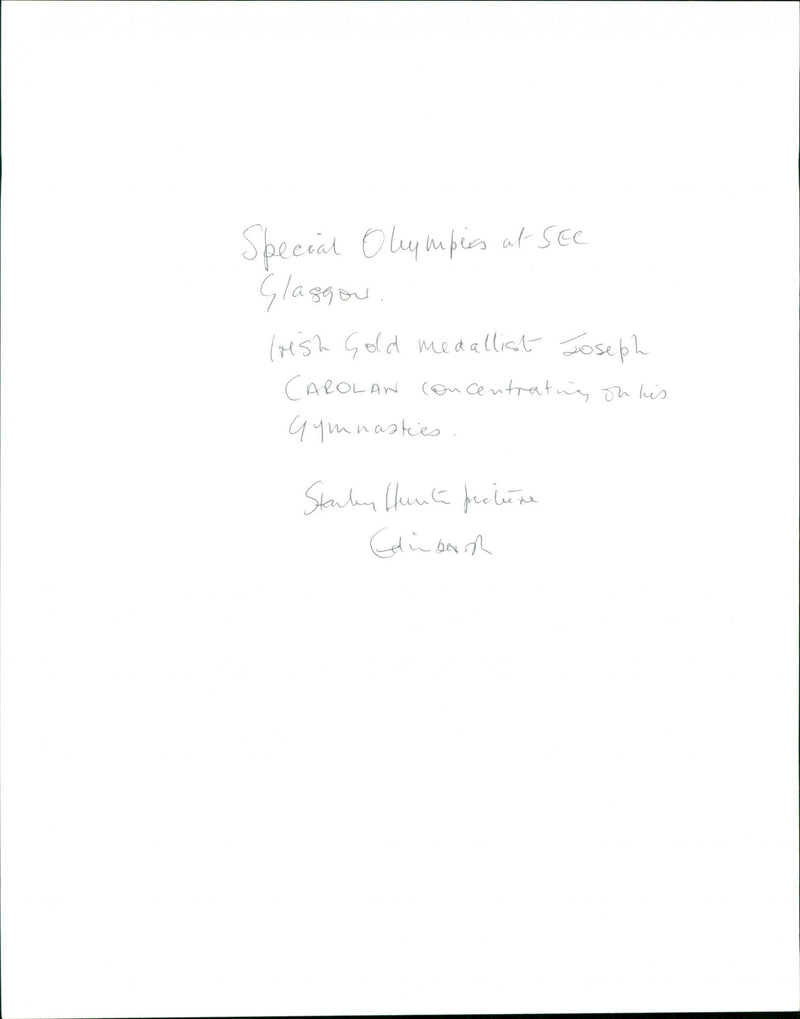 Special Olympics at SEC
Glasgow.
Irish Gold medallist Joseph
CAROLAN concentrating on his
Gymnastics.
Stanley Hunter picture
Edinburgh